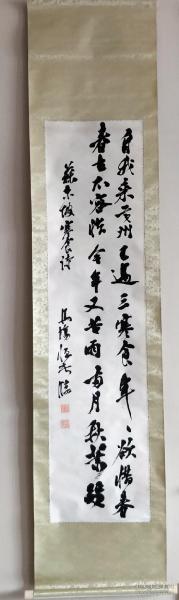 自我来黄州已過三寒食年〻欲惜春
春去不容惜今年又苦雨兩月秋蕭瑟
蘇東坡寒食诗